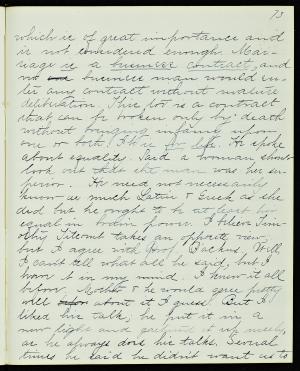 73
which is of great importance and
is not considered enough. Mar-
riage is a business contract, and
no business man would en-
ter any contract without mature
deliberation. This too is a contract
that can be broken only by death
without bringing infamy upon
one or both. It is for life. He spoke
about equality. Said a woman should
look out that the man was her su-
perior. He need not necessarily
know as much Latin & Greek as she
did but he ought to be at least her
equal in brain power. I believe
takes an opposite view,
but I agree with Prof. Backus. Well
I can't tell what all he said, but I
have it in my mind. I knew it all
before. Mother & he would agree pretty
well about it I guess. But I
liked his talk; he put it in a
new light and it up nicely,
as he always does his talks. Several
times he said he didn't want us to